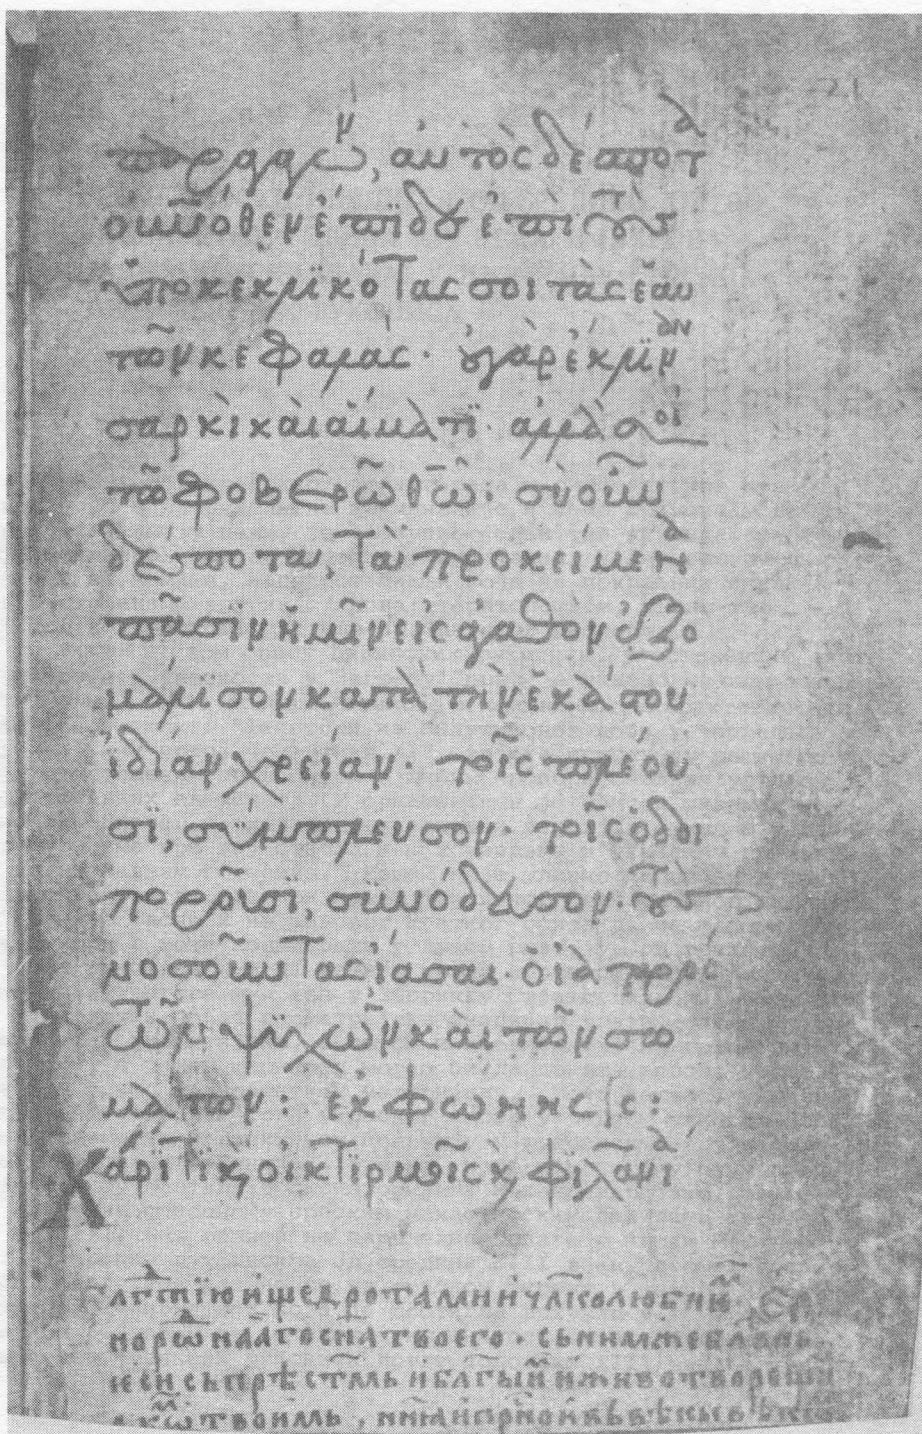 παραγαγών, αὐτὸς δέσποτα
οὐρανόθεν ἔπιδε ἐπὶ τοὺς
ὑποκεκλικότας σοι τὰς ἑαυ
τῶν κεφαλάς· οὐ γὰρ ἔκλιναν
σαρκὶ καὶ αἵματι· ἀλλὰ σοὶ
τῶ φοβερῶ θῶ· σὺ οὖν
δέσποτα, τὰ προκείμενα
πᾶσιν ἡμῖν εἰς ἀγαθὸν ἐξο
μάλισον κατὰ τὴν ἑκάστου
ἰδίαν χρείαν· τοῖς πλέου
σι, σύμπλευσον· τοῖς ὁδοι
ποροῦσι, συνόδευσον· τοὺς
νοσοῦντας ἴασαι· ὁ ἰατρὸς
τῶν ψυχῶν καὶ τῶν σω
μάτων: ἐκφώνησις:
Χάριτι κ, οἰκτιρμοῖς κ, φιλανι
лгтїю и щедротами и члколюбиѥм
норѡднааго сна твоего· сь нимже блвнь
ѥси сь прѣстмь и блгыим и животворещим
дхѡм твоимь, нинꙗ и прно и вь вѣкы вѣком